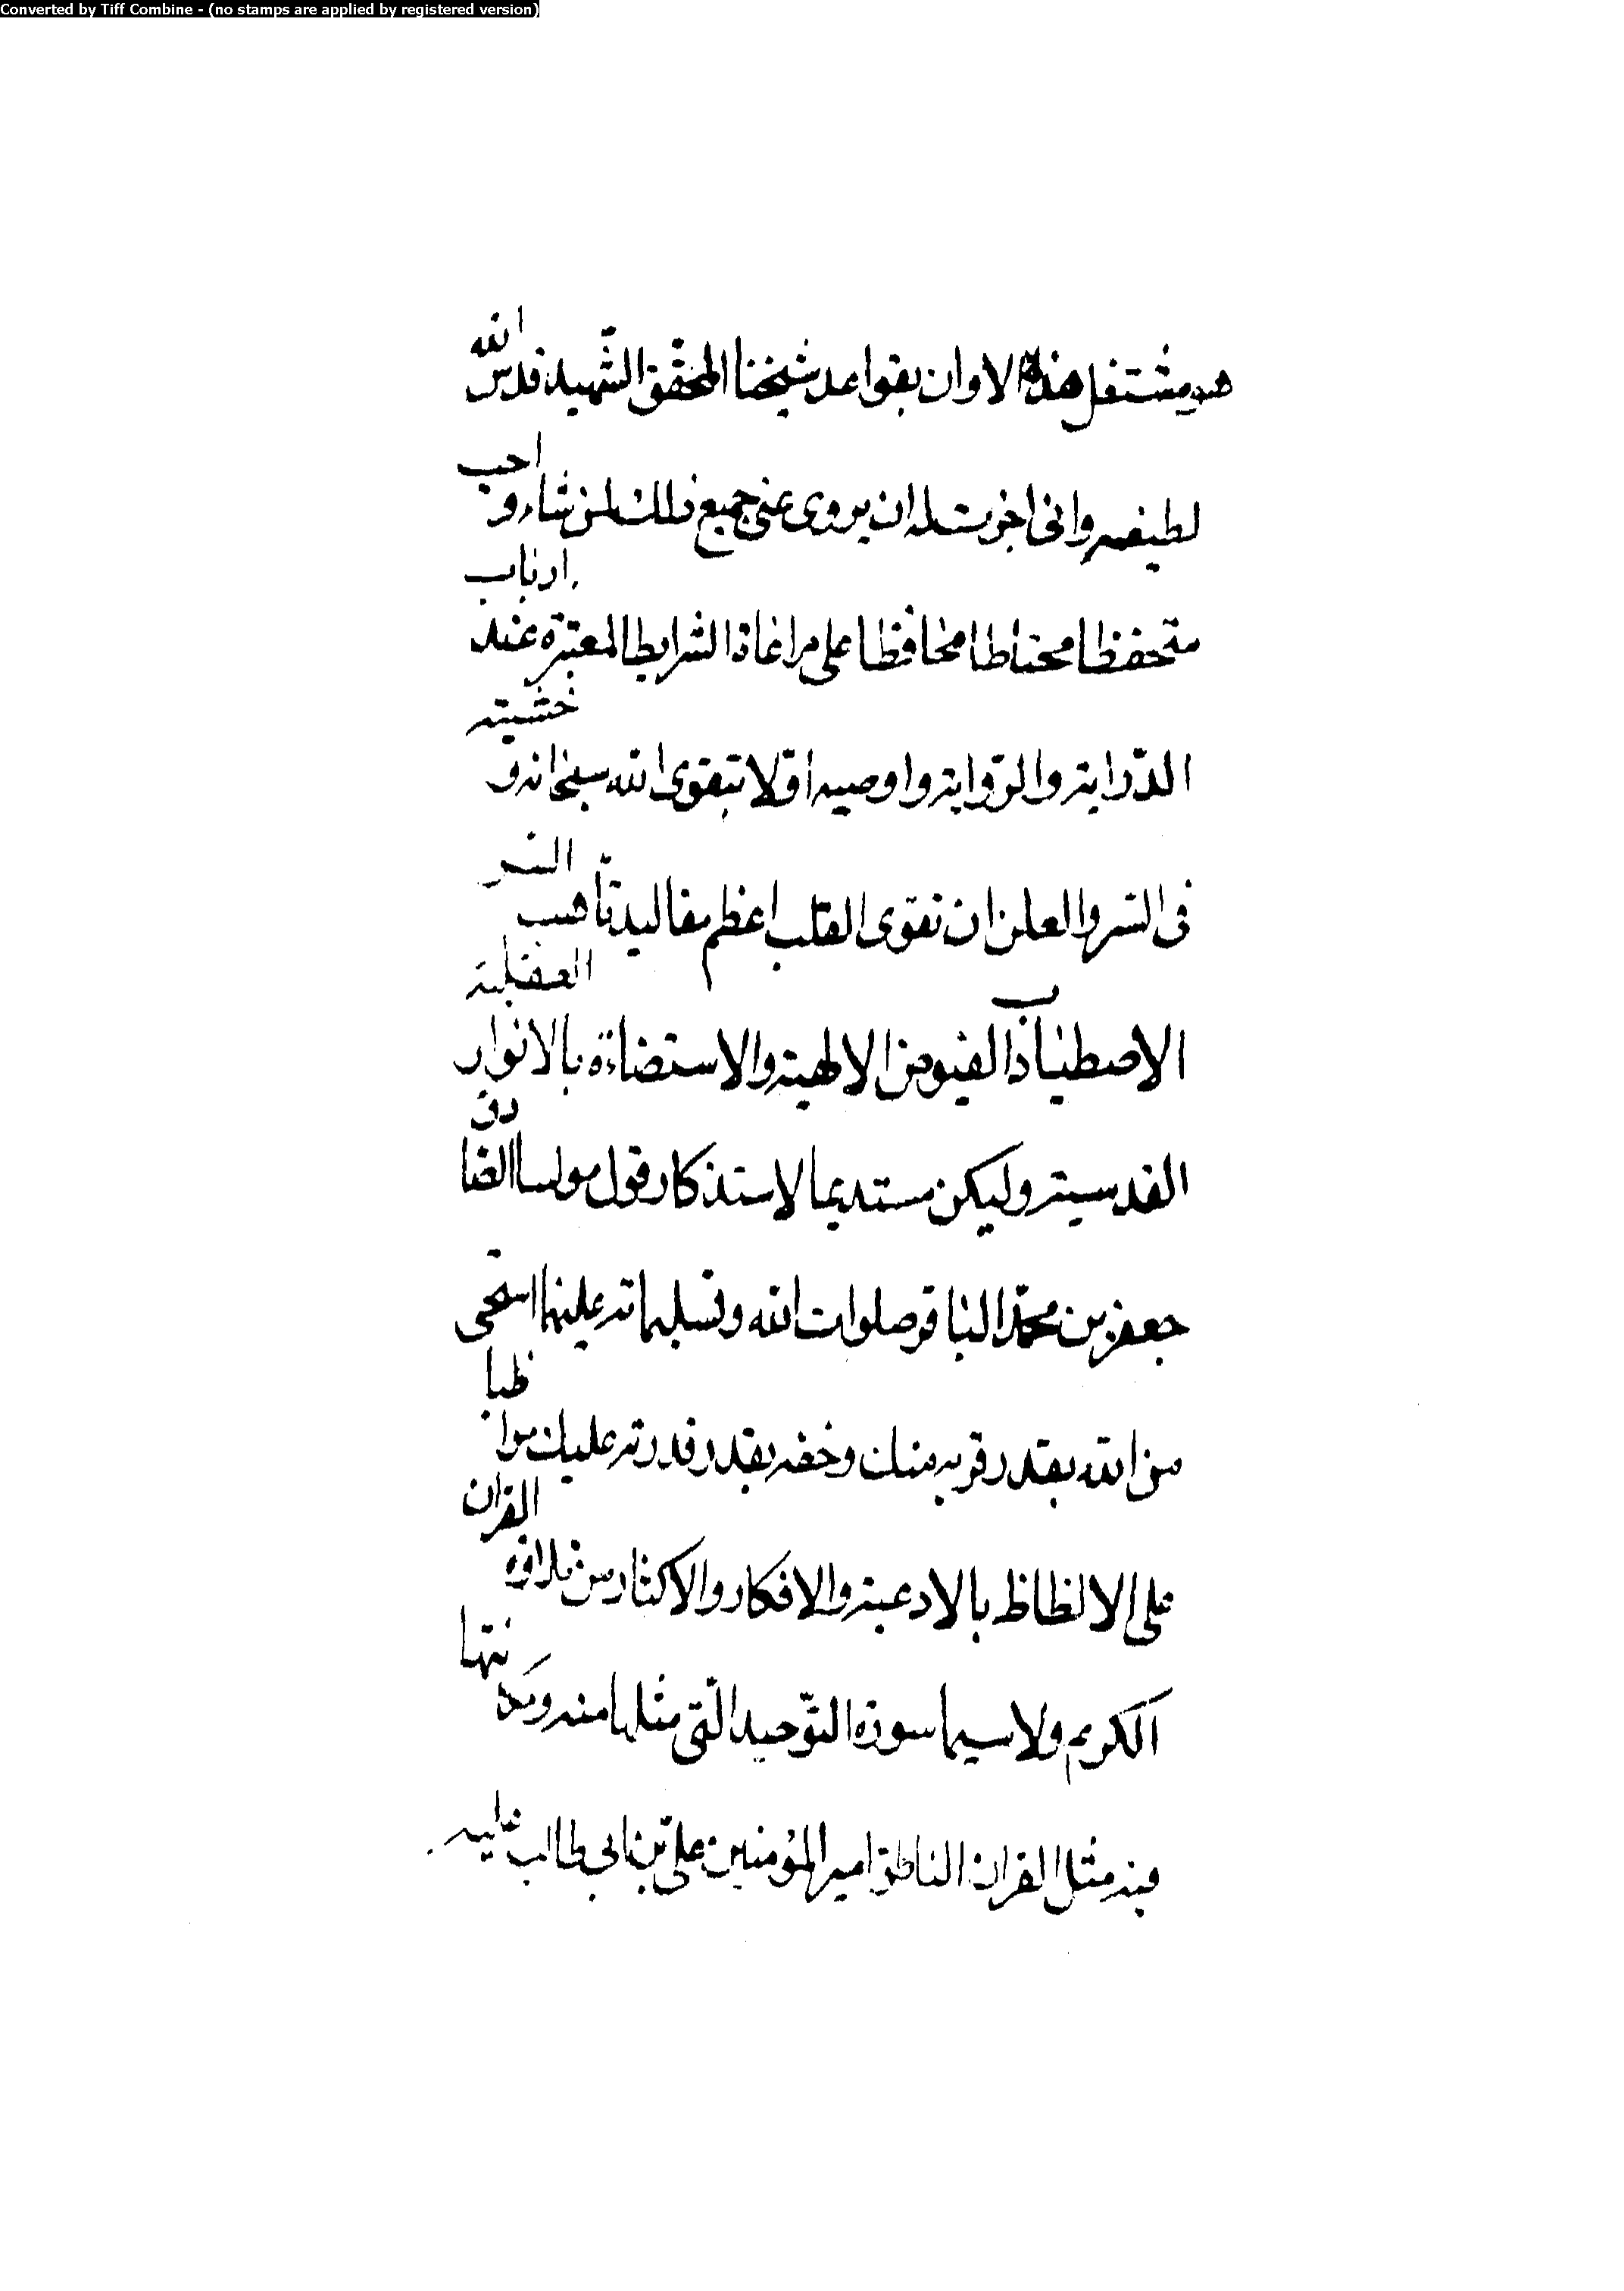 Converted by Tiff Combine - (no stamps are applied by registered version)
مشتغل هذه الاوان بقواعد شيخنا المحقق الشهيد قدس الله
لطيفه وانى اجزت له ان يروى عنى جميع ذلك لمن شاء و احب
متحفظا محتاطا محافظا على مراعاة الشرايط المعتبرة عند ارباب
الدّراية والرّواية واوصيه اوّلا بتقوى الله سبحانه و خشيته
فى السّر والعلن ان تقوى القلب اعظم مقاليد تأهب السر
الاصطياب الفيوض الالهية والاستضاءة بالانوار العقلية
القدسية وليكن مستديما لاستذكار قول مولينا الصادق
جعفر بن محمّد الباقر صلوات الله وتسليماته عليهما استحى
من الله بقدر قربه منك وخفه بقدر قدرته عليك مواظبا
على الالظاظ بالادعية والاذكار والاكثار من تلاوة القران
الكريم ولاسيما سورة التّوحيد الّتى مثلها منه ومكانتها
فيه مثل القران الناطق امير المؤمنين علىّ بن ابى طالب عليه